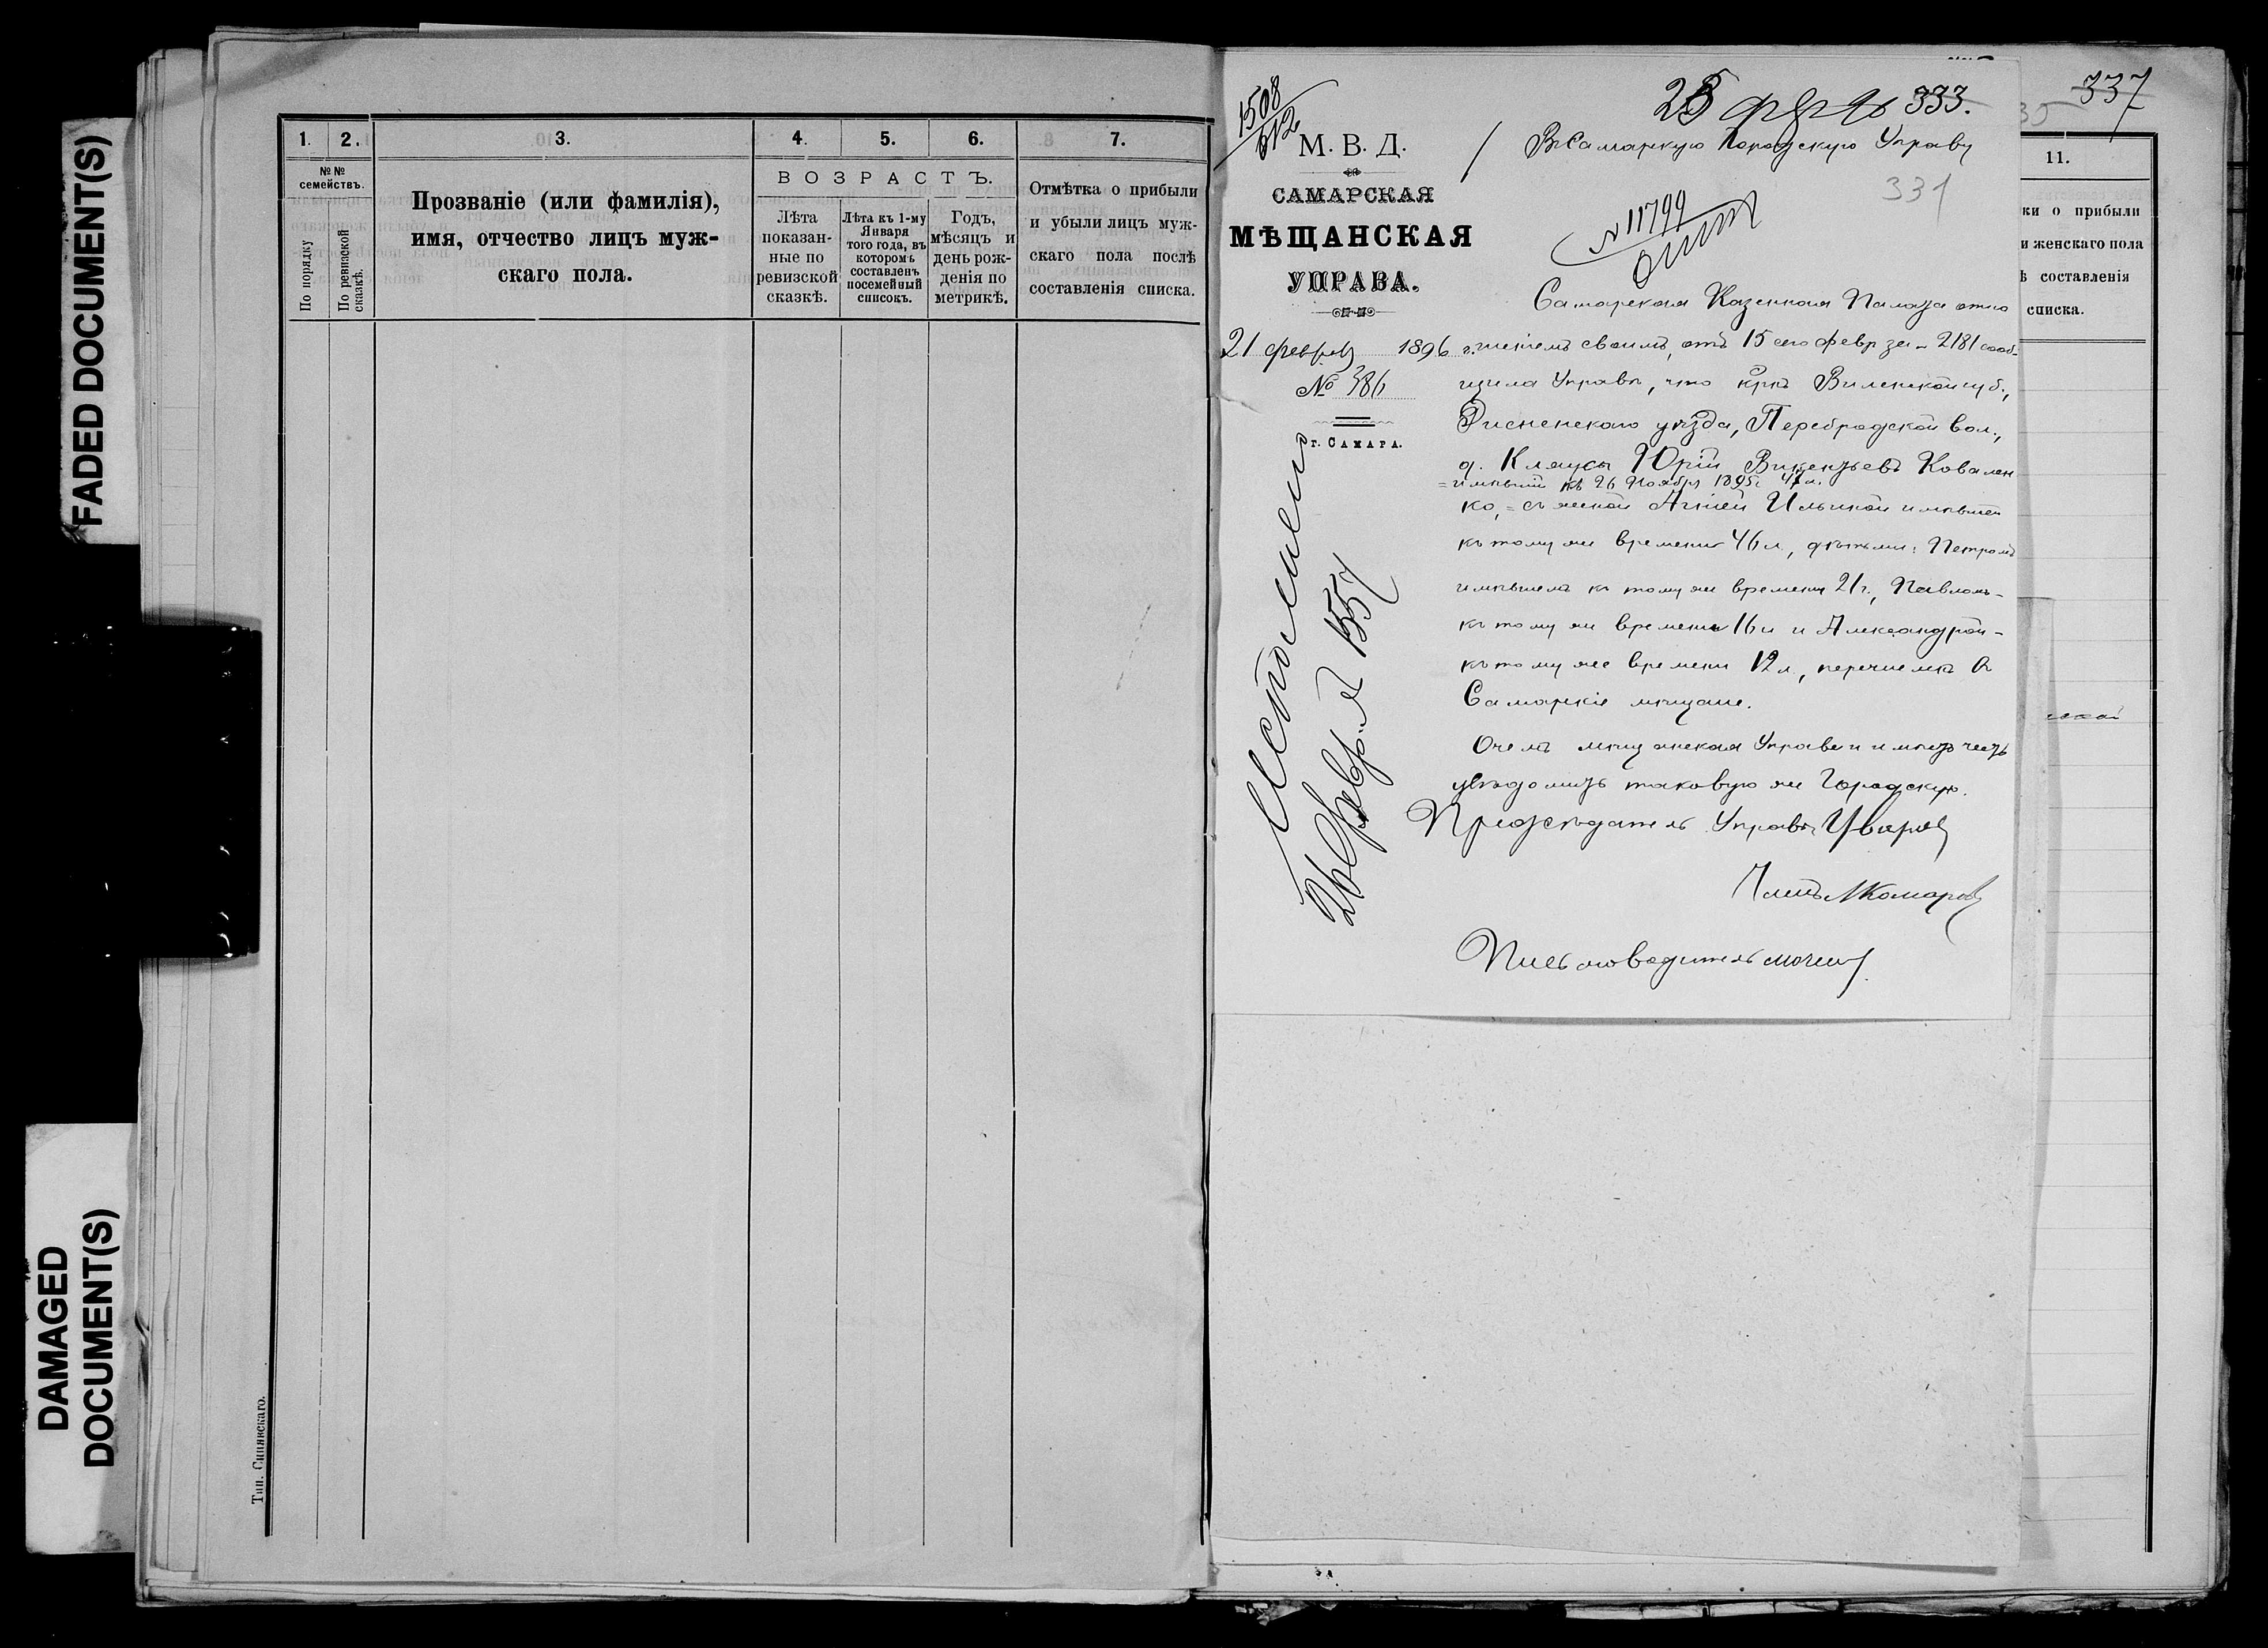 FADED DOCUMENT(S)
DAMAGED
DOCUMENT(S)
1. 2. 3. 4. 5. 6. 7.
№ № семействъ.
По порядку
По ревизской сказкѣ.
Прозваніе (или фамилія),
имя, отчество лицъ муж-
скаго пола.
ВОЗРАСТЪ.
Лѣта
показан-
ные по
ревизской
сказкѣ.
Лѣта къ 1-му
Января
того года, въ
которомъ
составленъ
посемейный
списокъ.
Годъ,
мѣсяцъ и
день рож-
денія по
метрикѣ.
Отмѣтка о прибыли
и убыли лицъ муж-
скаго пола послѣ
составленія списка.
Тип. Синявскаго.
1508
М. В. Д.
САМАРСКАЯ
МѢЩАНСКАЯ
УПРАВА.
21 февраля 1896 г.
№ 386
г. САМАРА.
Исполнено
26 Февр. 1557
333.
Въ Самарскую Городскую Управу
331
№ 11799
Самарская Казенная Палата отно
шеніемъ своимъ, отъ 15 сего февр за № 2181 сооб-
щила Управѣ, что кр-нъ Виленской губ.,
Дисненскаго уѣзда, Перебродской вол.,
д. Кляусы Юрій Викентьевъ Ковален
= имѣвшій къ 26 Ноября 1895 г. 47 л.
ко, = съ женой Агніей Ильиной имѣвшей
къ тому же времени 46 л., дѣтьми: Петромъ
имѣвшемъ къ тому же времени 21 г., Павломъ -
къ тому же времени 16 л и Александрой -
къ тому же времени 12 л., перечисленъ въ
Самарскіе мѣщане.
О чемъ мѣщанская Управа и имѣетъ честь
увѣдомить таковую же Городскую.
Предсѣдатель Управы Уваровъ
Членъ Комаровъ
Письмоводитель
337
35
11.
ки о прибыли
и женскаго пола
ѣ составленія
списка.